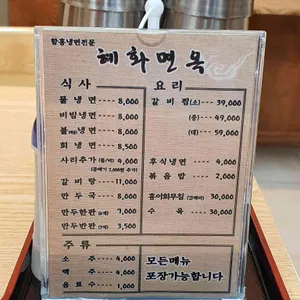 함흥냉면전문
혜화면옥
식사
물냉면 ---- 8,000
비빔냉면 --- 8,000
물냉면 --- 8,000
회냉면 ---- 8,500
사리추가 4,000
갈비탕 ---- 11,000
만두국 ---- 8,000
만두한판 7,000
만두반판 3,500
주류
소주 ---- 4,000
맥주 ---- 4,000
음료수 ---- 1,000
요리
갈비찜(소) --- 39,000
(중) --- 49,000
(대) --- 59,000
후식냉면 ---- 4,000
볶음밥 ---- 2,000
홍어회무침 30,000
수육 ---- 30,000
모든메뉴
포장가능합니다